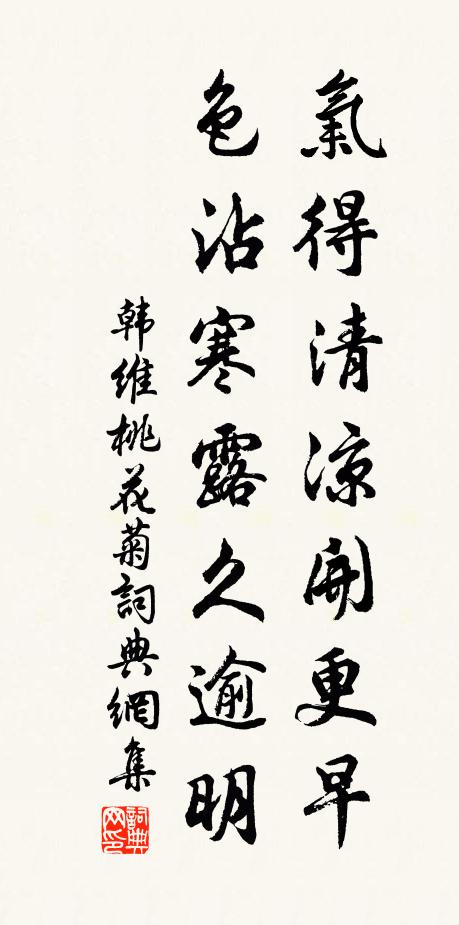 氣得清涼開更早
色沾寒露久逾明
韩维桃花菊詞典網集
詞典
网印